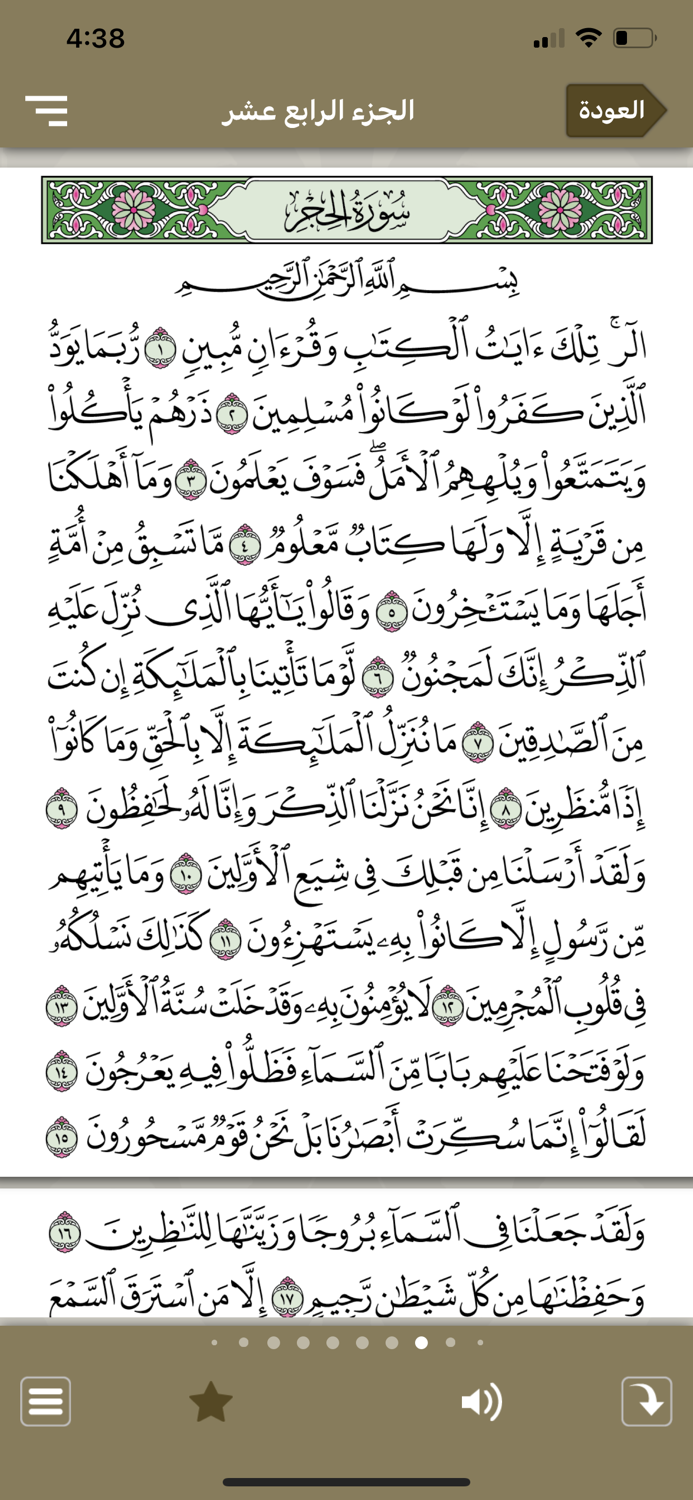 4:38
العودة
الجزء الرابع عشر
سُورَةُ الحِجْرِ
بِسْمِ ٱللَّهِ ٱلرَّحْمَٰنِ ٱلرَّحِيمِ
الٓرۚ تِلْكَ ءَايَٰتُ ٱلْكِتَٰبِ وَقُرْءَانٍ مُّبِينٍ ١ رُّبَمَا يَوَدُّ
ٱلَّذِينَ كَفَرُوا۟ لَوْ كَانُوا۟ مُسْلِمِينَ ٢ ذَرْهُمْ يَأْكُلُوا۟
وَيَتَمَتَّعُوا۟ وَيُلْهِهِمُ ٱلْأَمَلُۖ فَسَوْفَ يَعْلَمُونَ ٣ وَمَآ أَهْلَكْنَا
مِن قَرْيَةٍ إِلَّا وَلَهَا كِتَابٌ مَّعْلُومٌ ٤ مَّا تَسْبِقُ مِنْ أُمَّةٍ
أَجَلَهَا وَمَا يَسْتَـْٔخِرُونَ ٥ وَقَالُوا۟ يَٰٓأَيُّهَا ٱلَّذِى نُزِّلَ عَلَيْهِ
ٱلذِّكْرُ إِنَّكَ لَمَجْنُونٌ ٦ لَّوْ مَا تَأْتِينَا بِٱلْمَلَٰٓئِكَةِ إِن كُنتَ
مِنَ ٱلصَّٰدِقِينَ ٧ مَا نُنَزِّلُ ٱلْمَلَٰٓئِكَةَ إِلَّا بِٱلْحَقِّ وَمَا كَانُوٓا۟
إِذًا مُّنظَرِينَ ٨ إِنَّا نَحْنُ نَزَّلْنَا ٱلذِّكْرَ وَإِنَّا لَهُۥ لَحَٰفِظُونَ ٩
وَلَقَدْ أَرْسَلْنَا مِن قَبْلِكَ فِى شِيَعِ ٱلْأَوَّلِينَ ١٠ وَمَا يَأْتِيهِم
مِّن رَّسُولٍ إِلَّا كَانُوا۟ بِهِۦ يَسْتَهْزِءُونَ ١١ كَذَٰلِكَ نَسْلُكُهُۥ
فِى قُلُوبِ ٱلْمُجْرِمِينَ ١٢ لَا يُؤْمِنُونَ بِهِۦ وَقَدْ خَلَتْ سُنَّةُ ٱلْأَوَّلِينَ ١٣
وَلَوْ فَتَحْنَا عَلَيْهِم بَابًا مِّنَ ٱلسَّمَآءِ فَظَلُّوا۟ فِيهِ يَعْرُجُونَ ١٤
لَقَالُوٓا۟ إِنَّمَا سُكِّرَتْ أَبْصَٰرُنَا بَلْ نَحْنُ قَوْمٌ مَّسْحُورُونَ ١٥
وَلَقَدْ جَعَلْنَا فِى ٱلسَّمَآءِ بُرُوجًا وَزَيَّنَّٰهَا لِلنَّٰظِرِينَ ١٦
وَحَفِظْنَٰهَا مِن كُلِّ شَيْطَٰنٍ رَّجِيمٍ ١٧ إِلَّا مَنِ ٱسْتَرَقَ ٱلسَّمْعَ